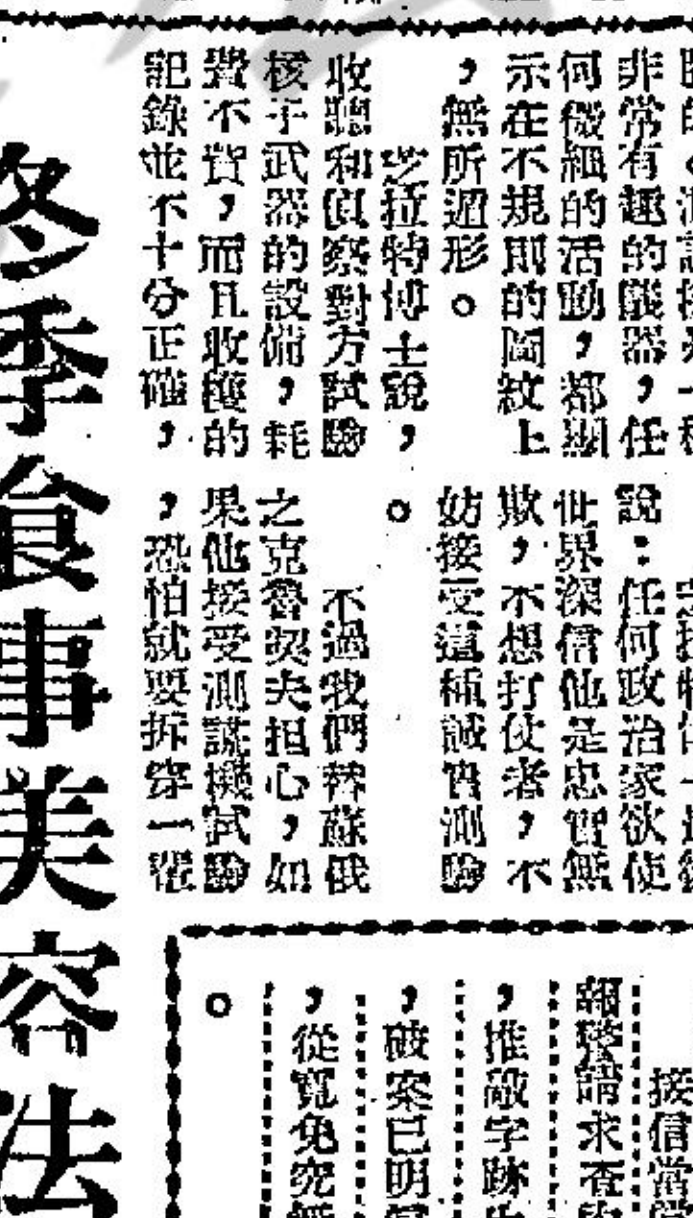 非常有趣的儀器，任
何微細的活動，都顯
示在不規則的圖紋上
，無所遁形。
芝拉特博士說，
收聽和偵察對方試驗
核子武器的設備，耗
費不貲，而且收穫的
記錄並不十分正確，
說：任何政治家欲使
世界深信他是忠實無
欺，不想打仗者，不
妨接受這種誠實測驗
。
不過我們替蘇俄
之克魯契夫担心，如
果他接受測謊機試驗
，恐怕就要拆穿一輩
接信當
報警請求查
，推敲字跡
，破案已明
，從寬免究
。
冬季食事美容法